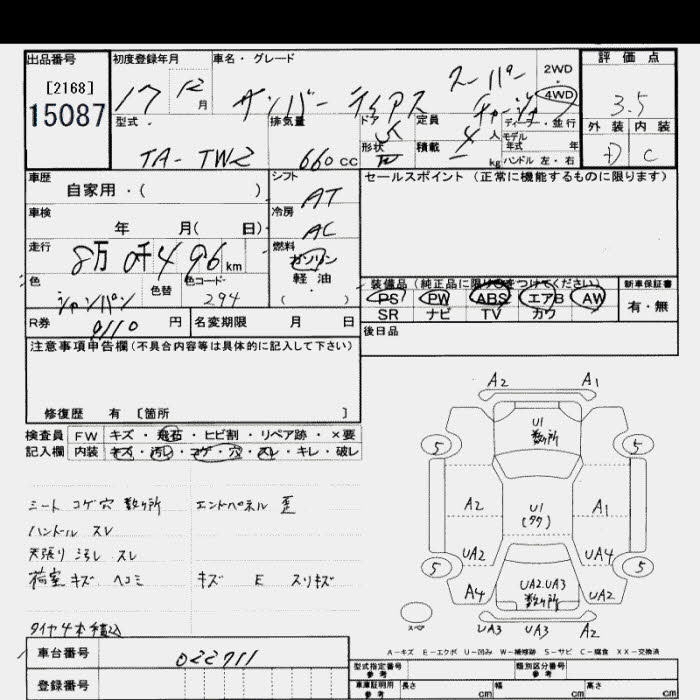 出品番号
[2168]
15087
初度登録年月
17 12月
車名・グレード
サンバー ディアス スーパーチャージャ
2WD・4WD
評価点
3.5
外装 内装
D C
型式
TA-TW2
排気量
660cc
ドア
5
形状
定員
4人
積載
kg
ディーラー・並行
モデル年式 年
ハンドル 左・右
車歴
自家用・( )
車検
年 月( 日)
走行
8万0千496km
色
シャンパン
色替
色コード
294
シフト
AT
冷房
AC
燃料
ガソリン
軽油
( )
セールスポイント (正常に機能するものに限ります)
装備品(純正品に限り○をつけてください)
PS PW ABS エアB AW
SR ナビ TV カワ
新車保証書
有・無
後日品
R券
9110円
名変期限 月 日
注意事項申告欄(不具合内容等は具体的に記入して下さい)
修復歴 有 [箇所 ]
検査員記入欄
FW キズ・飛石・ヒビ割・リペア跡・×要
内装 キズ・汚レ・コゲ・穴・スレ・キレ・破レ
シート コゲ穴 数ヶ所 エンドパネル 歪
ハンドル スレ
天張り 汚レ スレ
荷室 キズ ヘコミ キズ E スリキズ
タイヤ4本積込
A2 A1
U1 数ヶ所
5 5
A2 U1 A1
UA2 UA4
5 5
A4 UA2.UA3 数ヶ所 UA2
スペア
UA3 UA3 A2
A-キズ E-エクボ U-凹み W-補修跡 S-サビ C-腐食 XX-交換済
車台番号
022711
登録番号
型式指定番号 参考
類別区分番号 参考
車庫証明用 参考
長さ cm 幅 cm 高さ cm